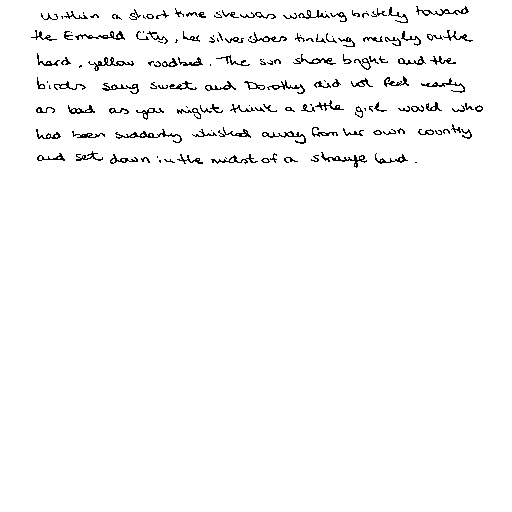 Within a short time she was walking briskly toward
the Emerald City, her silver shoes tinkling merrily on the
hard, yellow roadbed. The sun shone bright and the
birds sang sweet and Dorothy did not feel nearly
as bad as you might think a little girl would who
had been suddenly whisked away from her own country
and set down in the midst of a strange land.